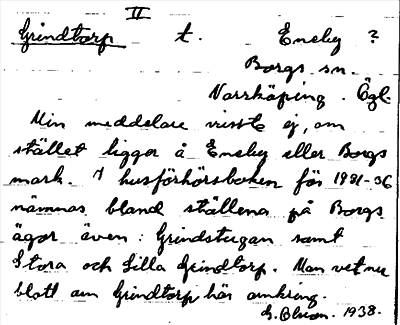 II
Grindtorp t. Eneby ?
Borgs sn.
Norrköping. Ögl.
Min meddelare visste ej, om
stället ligger å Eneby eller Borgs
mark. I husförhörsboken för 1831-36
nämnas bland ställena på Borgs
ägor även: Grindstugan samt
Stora och Lilla Grindtorp. Man vet nu
blott om Grindtorp här omkring.
G. 1938.